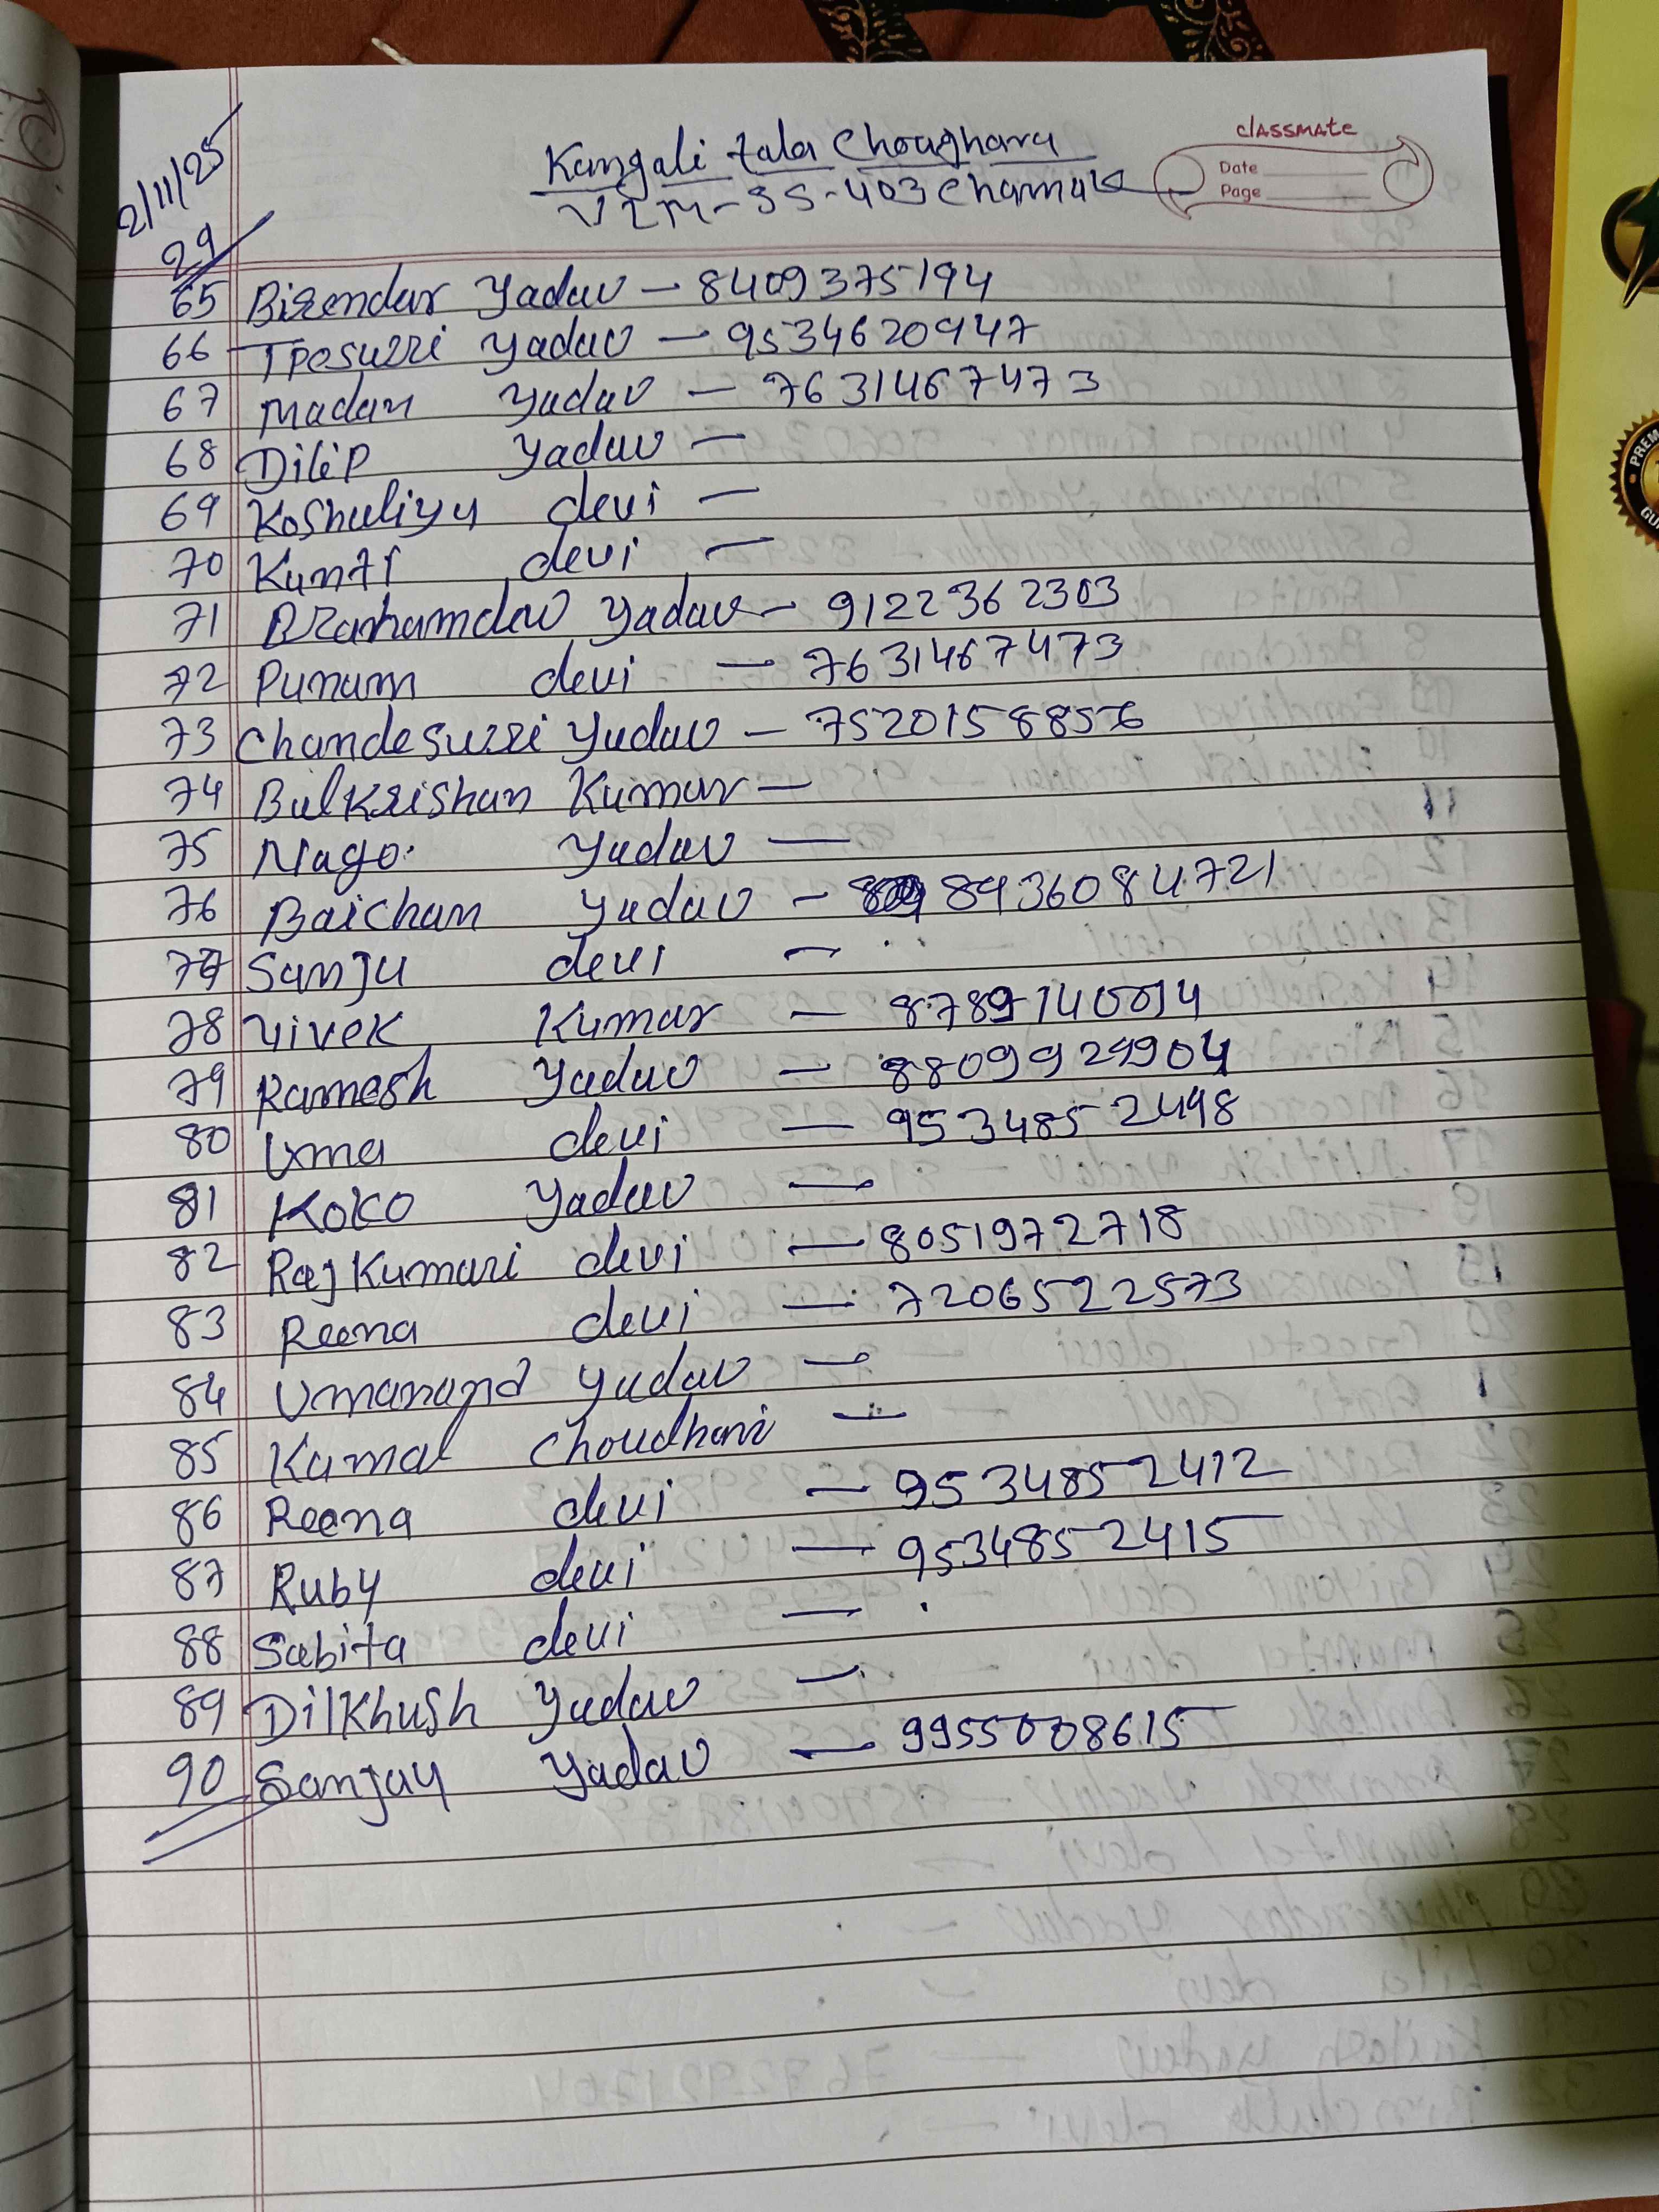 classmate
Date
Page
2/11/25
29
Kangali tala Choaghara
VIM-SS-403 Chamak
65 Birendar Yadav - 8409375194
66 Tpesurri Yadav - 9534620947
67 Madan Yadav - 7631467473
68 Dilip Yadav -
69 Koshuliya devi -
70 Kunti devi -
71 Brahamdev Yadav - 9122362303
72 Punam devi - 7631467473
73 Chandesurri Yadav - 7520158856
74 Balkrishan Kumar -
75 Nago. Yadav -
76 Baichan Yadav - 8936084721
77 Sanju devi -
78 Vivek Kumar - 8789140014
79 Ramesh Yadav - 8809929904
80 Uma devi - 9534852498
81 Koko Yadav -
82 Raj Kumari devi - 8051972718
83 Reena devi - 7206522573
84 Umanand Yadav -
85 Kamal Choudhari -
86 Reena devi - 9534852412
87 Ruby devi - 9534852415
88 Sabita devi -
89 Dilkhush Yadav -
90 Sanjay Yadav - 9955008615